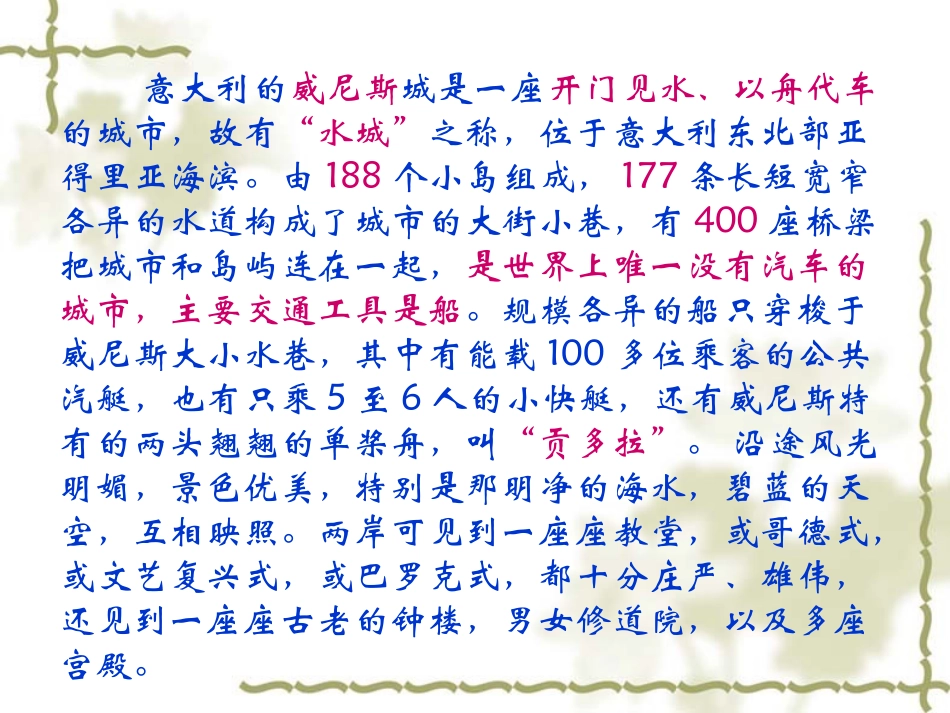 意大利的威尼斯城是一座开门见水、以舟代车
的城市，故有“水城”之称，位于意大利东北部亚
得里亚海滨。由188个小岛组成，177条长短宽窄
各异的水道构成了城市的大街小巷，有400座桥梁
把城市和岛屿连在一起，是世界上唯一没有汽车的
城市，主要交通工具是船。规模各异的船只穿梭于
威尼斯大小水巷，其中有能载100多位乘客的公共
汽艇，也有只乘5至6人的小快艇，还有威尼斯特
有的两头翘翘的单桨舟，叫“贡多拉”。沿途风光
明媚，景色优美，特别是那明净的海水，碧蓝的天
空，互相映照。两岸可见到一座座教堂，或哥德式，
或文艺复兴式，或巴罗克式，都十分庄严、雄伟，
还见到一座座古老的钟楼，男女修道院，以及多座
宫殿。